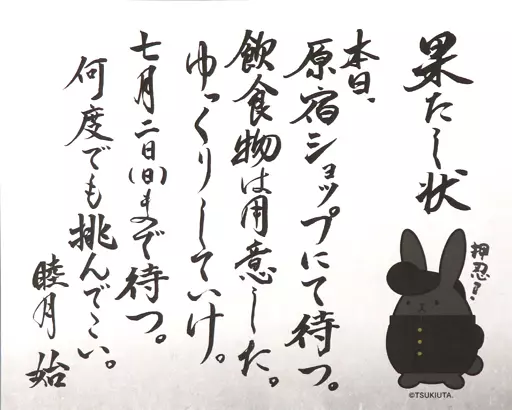 果たし状
本日、
原宿ショップにて待つ。
飲食物は用意した。
ゆっくりしていけ。
七月二日(日)まで待つ。
何度でも挑んでこい。
睦月 始
押忍?
©TSUKIUTA.